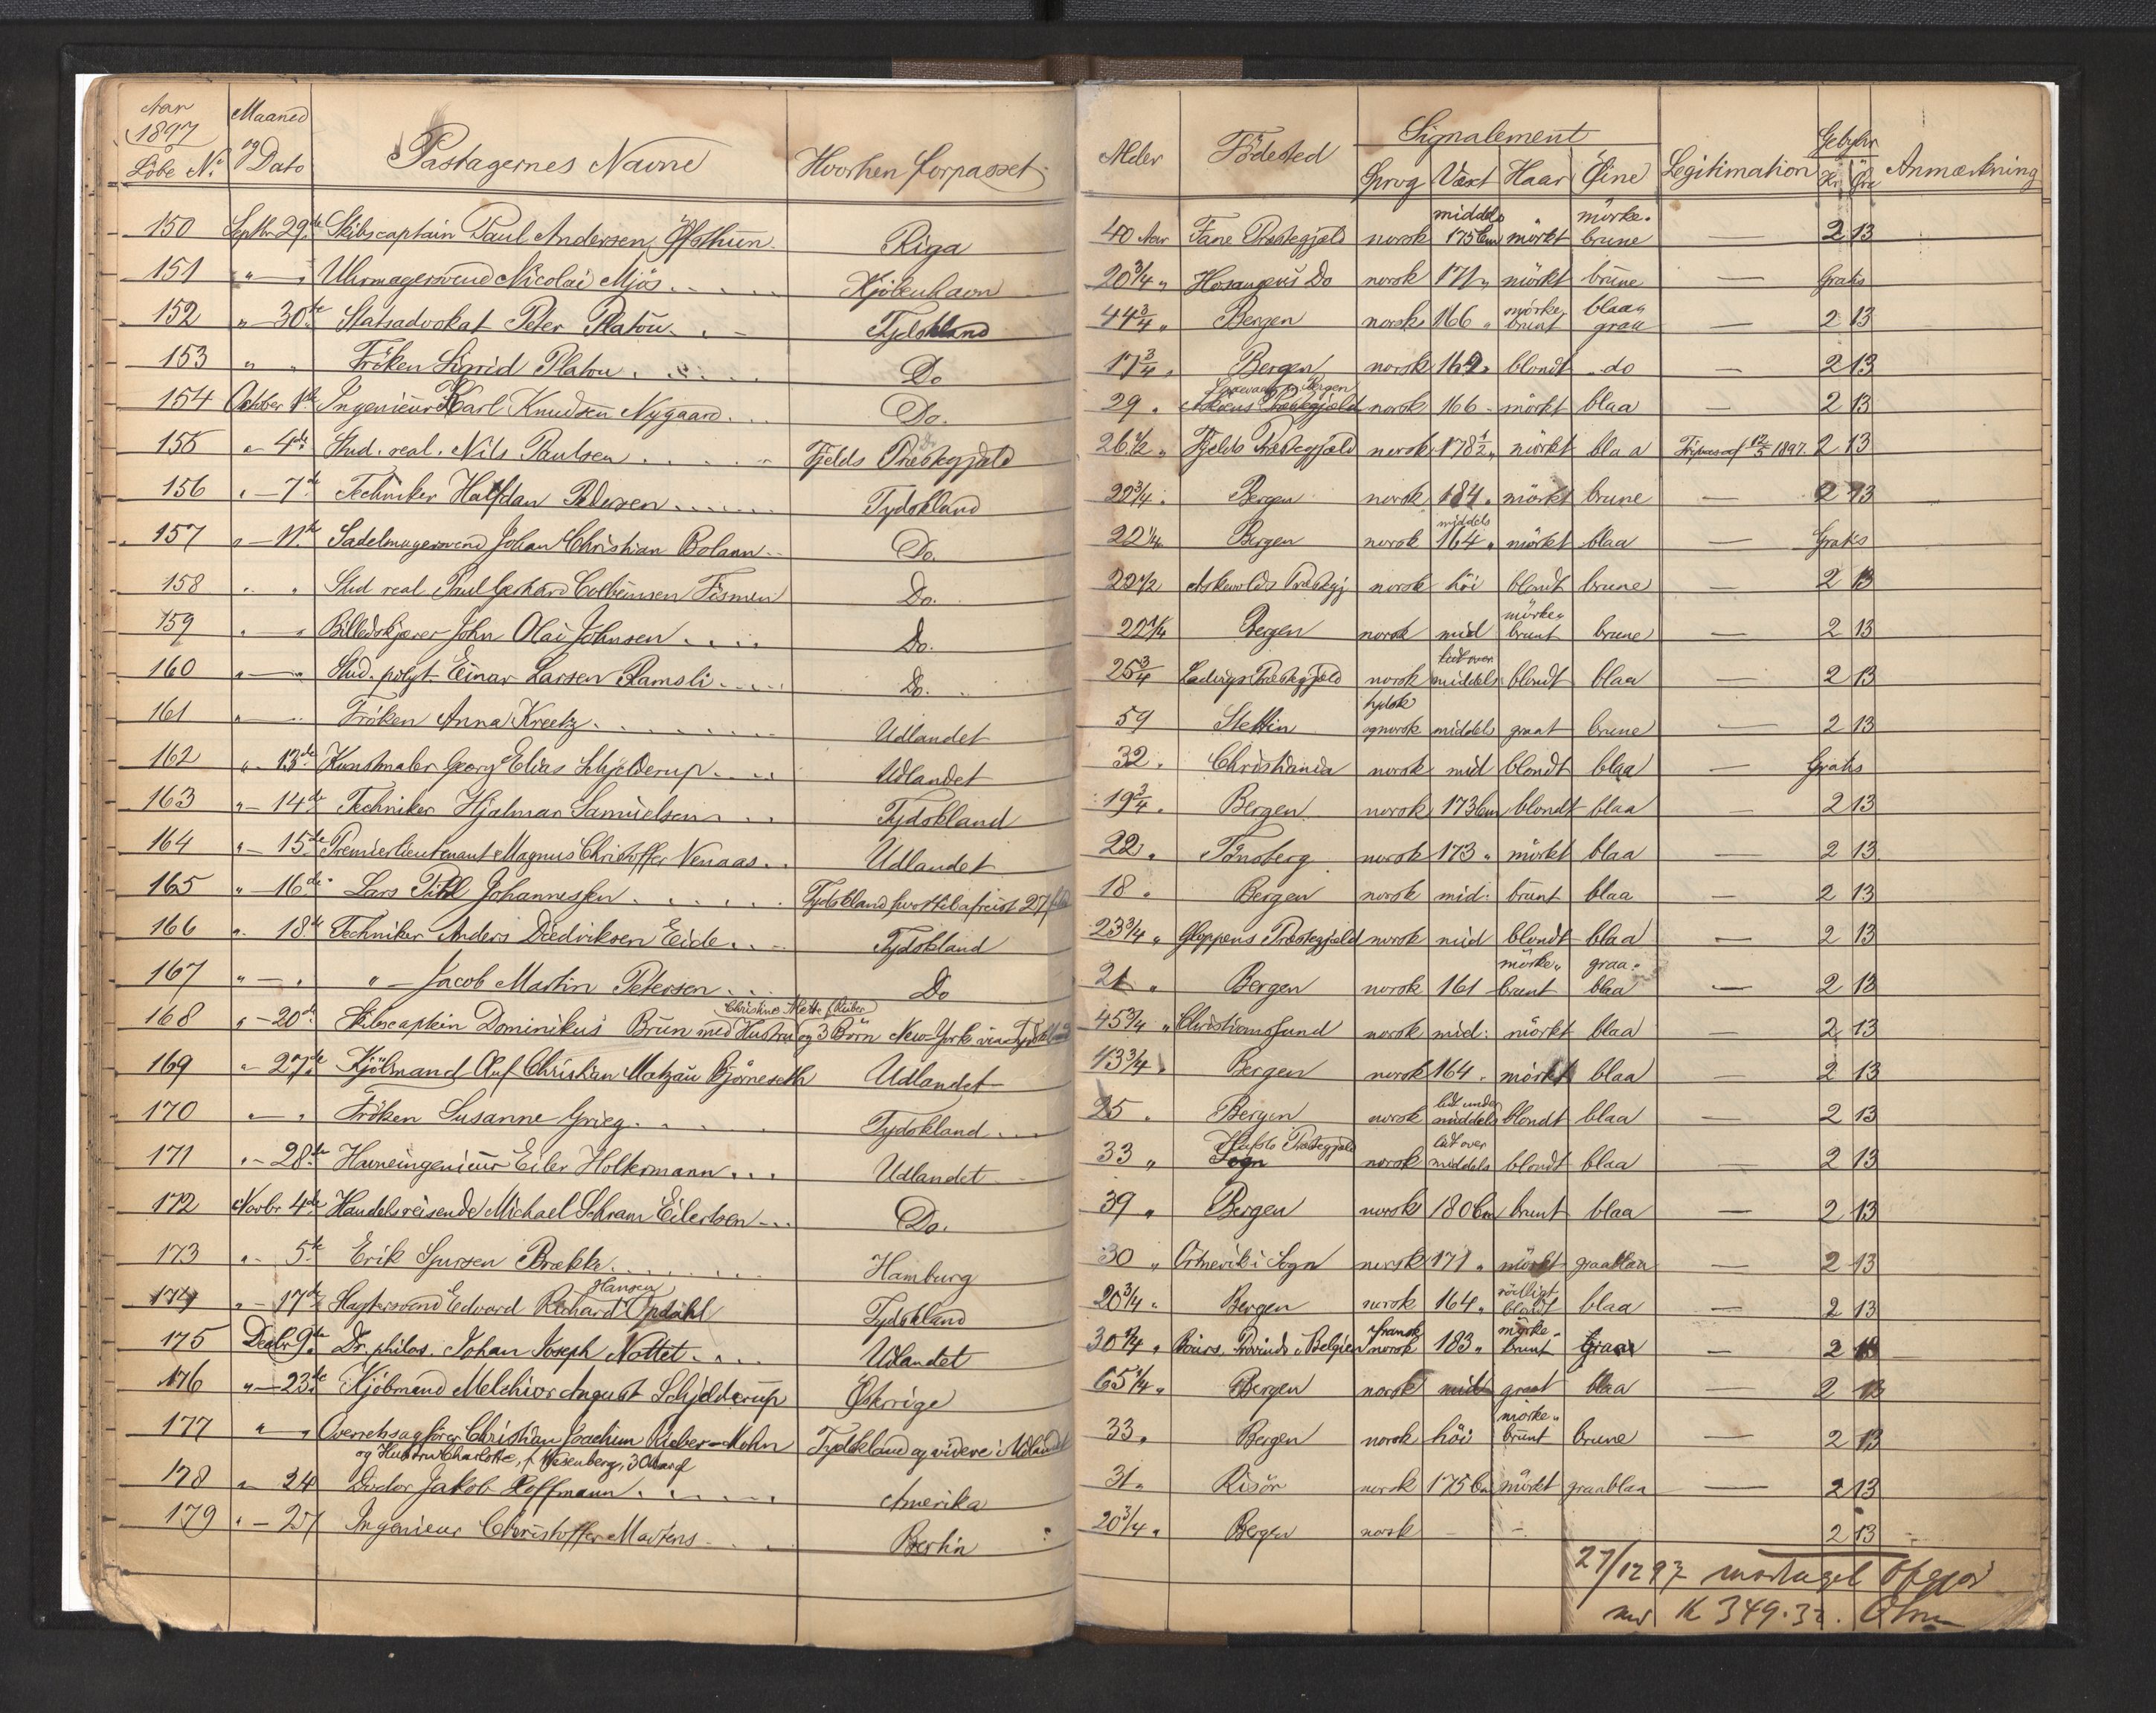 Aar 1897 Maaned
Löbe No. og Dato Passagernes Navne Hvorhen forpasset Alder Födested Signalement Legitimation Gebyhr Anmærkning
Sprog Væxt Haar Öine Kr. Öre
150 Septbr 29de Skibscaptain Paul Andersen Riga 40 Aar Fane Præstegjæld norsk middels 175 Cm mörkt mörke brune — 2 13
151 " — " Uhrmagersvend Nicolai Mjös Kjöbenhavn 20 3/4 " Hosangers Do norsk 171 " mörkt brune — Gratis
152 " — 30te Statsadvokat Peter Platou Tydskland 44 3/4 " Bergen norsk 166 " mörke brunt blaa graa — 2 13
153 " " Fröken Sigrid Platou Do 17 3/4 " Bergen norsk 162 " blondt do — 2 13
154 October 1ste Ingenieur Karl Knudsen Nygaard Do. 29 " Præstegjæld norsk 166 mörkt blaa — 2 13
155 " 4de Stud. real. Nils Paulsen Fjelds Præstegjæld 26 1/2 " Fjelds Præstegjæld norsk 178 1/2 " mörkt blaa 1897. 2 13
156 " — 7de Techniker Halfdan Pedersen Tydskland 22 3/4 " Bergen norsk 184 " mörkt brune — 2 13
157 " — 11te Sadelmagersvend Johan Christian Bolann Do. 22 1/4 Bergen norsk middels 164 " mörkt blaa — Gratis
158 " " Stud real Paul Gerhard Fismen Do. 22 1/2 Askevolds Præstegj norsk höi blondt brune — 2 13
159 " — " Billedskjærer John Olai Johnsen Do. 22 1/4 Bergen norsk mid mörke brunt brune — 2 13
160 " — " Stud. polyt. Einar Larsen Ramsli Do. 25 3/4 Præstegjæld norsk lidt over middels blondt blaa — 2 13
161 " — Fröken Anna Kreetz Udlandet 59 Stettin tydsk og norsk middels graat brune — 2 13
162 " 13de Kunstmaler Georg Elias Schjelderup Udlandet 32 " Christiania norsk mid blondt blaa — Gratis
163 " — 14de Techniker Hjalmar Samuelsen Tydskland 19 3/4 " Bergen norsk 173 Cm blondt blaa — 2 13
164 " — 15de Premierlieutenant Magnus Christoffer Venaas Udlandet 22 " Tönsberg norsk 173 " mörkt blaa — 2 13
165 " — 16de Lars Pihl Johannessen Tydskland 18 " Bergen norsk mid: brunt blaa — 2 13
166 " 18de Techniker Anders Diedriksen Eide Tydskland 23 3/4 " Gloppens Præstegjæld norsk mid blondt blaa — 2 13
167 " — " " — Jacob Martin Petersen Do 21 " Bergen norsk 161 mörke brunt graa blaa — 2 13
168 " — 20de Skibscaptein Dominikus Brun med Hustru Christine Mette og 3 Börn New-York via Tydskland 45 3/4 " Christiansund norsk mid: mörkt blaa — 2 13
169 " 27de Kjöbmand Oluf Christian Björneseth Udlandet 43 3/4 " Bergen norsk 164 mörkt blaa — 2 13
170 " — " Fröken Susanne Grieg Tydskland 25 " Bergen norsk lidt under middels blondt blaa — 2 13
171 " — 28de Havneingenieur Eiler Holtermann Udlandet 33 " Præstegjæld Sogn norsk lidt over middels blondt blaa — 2 13
172 Novbr 4de Handelsreisende Michael Schram Eilertsen Do. 39 " Bergen norsk 180 Cm brunt blaa — 2 13
173 " 5te Erik Sjursen Brække Hamburg 30 " Ortnevik i Sogn norsk 171 " mörkt graablaa — 2 13
174 " — 17de Edvard Richard Hansen Opdahl Tydskland 20 3/4 " Bergen norsk 164 " rödligt blondt blaa — 2 13
175 Decbr 9de Dr. philos. Johan Joseph Nottet Udlandet 30 1/4 " Provinds i Belgien fransk norsk 183 " mörke brunt Graa — 2 13
176 " — 23de Kjöbmand Melchior August Schjelderup Östrige 65 1/4 " Bergen norsk mid graat blaa — 2 13
177 " — " Overretssagförer Christian Joachim Rieber-Mohn Tydskland og videre i Udlandet 33 " Bergen norsk höi mörke brunt brune — 2 13
og Hustru Charlotte, f. Wesenberg, 30 Aar
178 " 24 Doctor Jakob Hoffmann Amerika 31 " Risör norsk 175 Cm mörkt graablaa — 2 13
179 " — 27 Ingenieur Christoffer Martens Berlin 20 3/4 " Bergen norsk — — 2 13
27/12 97 modtaget
K 349.32.